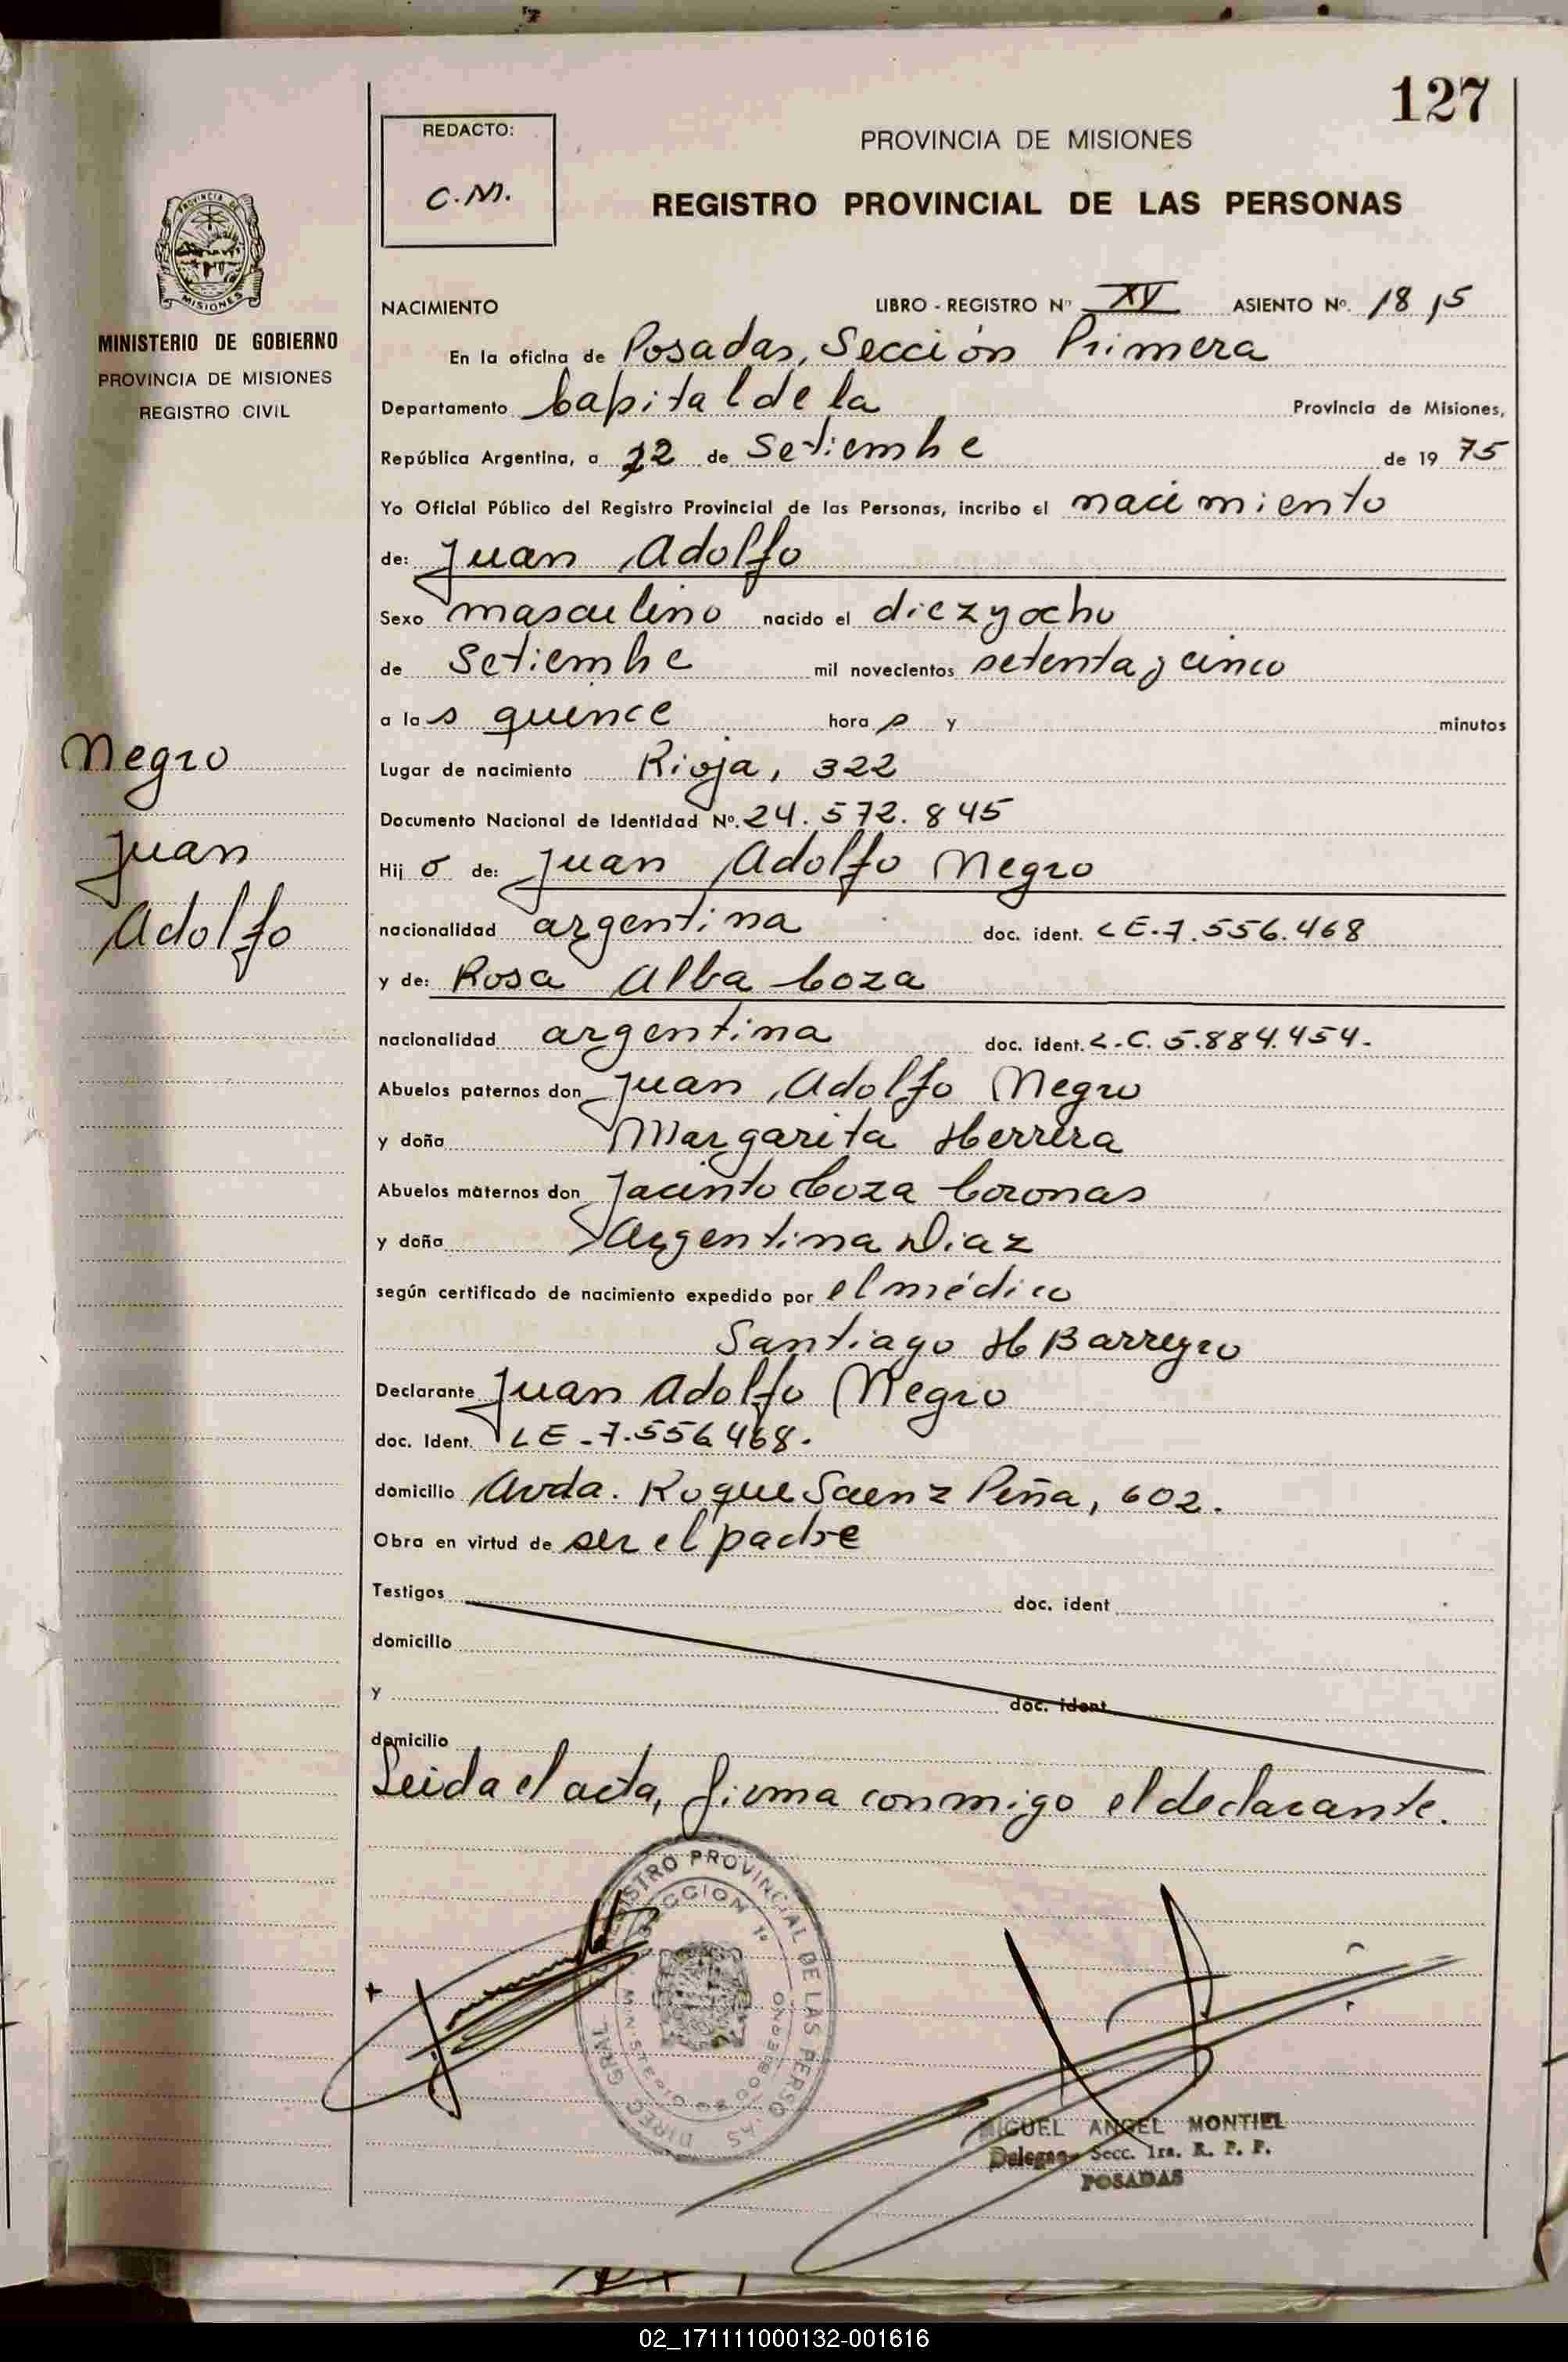 127
REDACTO:
C.M.
PROVINCIA DE MISIONES
REGISTRO PROVINCIAL DE LAS PERSONAS
PROVINCIA DE
MISIONES
MINISTERIO DE GOBIERNO
PROVINCIA DE MISIONES
REGISTRO CIVIL
NACIMIENTO LIBRO - REGISTRO Nº XV ASIENTO Nº. 1815
En la oficina de Posadas, Sección Primera
Departamento Capital de la Provincia de Misiones,
República Argentina, a 22 de Setiembre de 1975
Yo Oficial Público del Registro Provincial de las Personas, incribo el nacimiento
de: Juan Adolfo
Sexo masculino nacido el diez y ocho
de Setiembre mil novecientos setenta y cinco
a las quince horas y minutos
Lugar de nacimiento Rioja, 322
Documento Nacional de Identidad Nº. 24.572.845
Hijo de: Juan Adolfo Negro
nacionalidad argentina doc. ident. LE.7.556.468
y de: Rosa Alba Coza
nacionalidad argentina doc. ident. L.C. 5.884.454.
Abuelos paternos don Juan Adolfo Negro
y doña Margarita Herrera
Abuelos maternos don Jacinto Coza Coronas
y doña Argentina Diaz
según certificado de nacimiento expedido por el médico
Santiago H Barreyro
Declarante Juan Adolfo Negro
doc. Ident. LE-7.556.468.
domicilio Avda. Roque Saenz Peña, 602.
Obra en virtud de ser el padre
Testigos doc. ident
domicilio
y doc. ident
domicilio
Leida el acta, firma conmigo el declarante.
Negro
Juan
Adolfo
REGISTRO PROVINCIAL DE LAS PERSONAS
SECCION 1ª
MINISTERIO DE GOBIERNO
DIREC. GRAL.
MIGUEL ANGEL MONTIEL
Delegado Secc. 1ra. R. P. P.
POSADAS
02_171111000132-001616